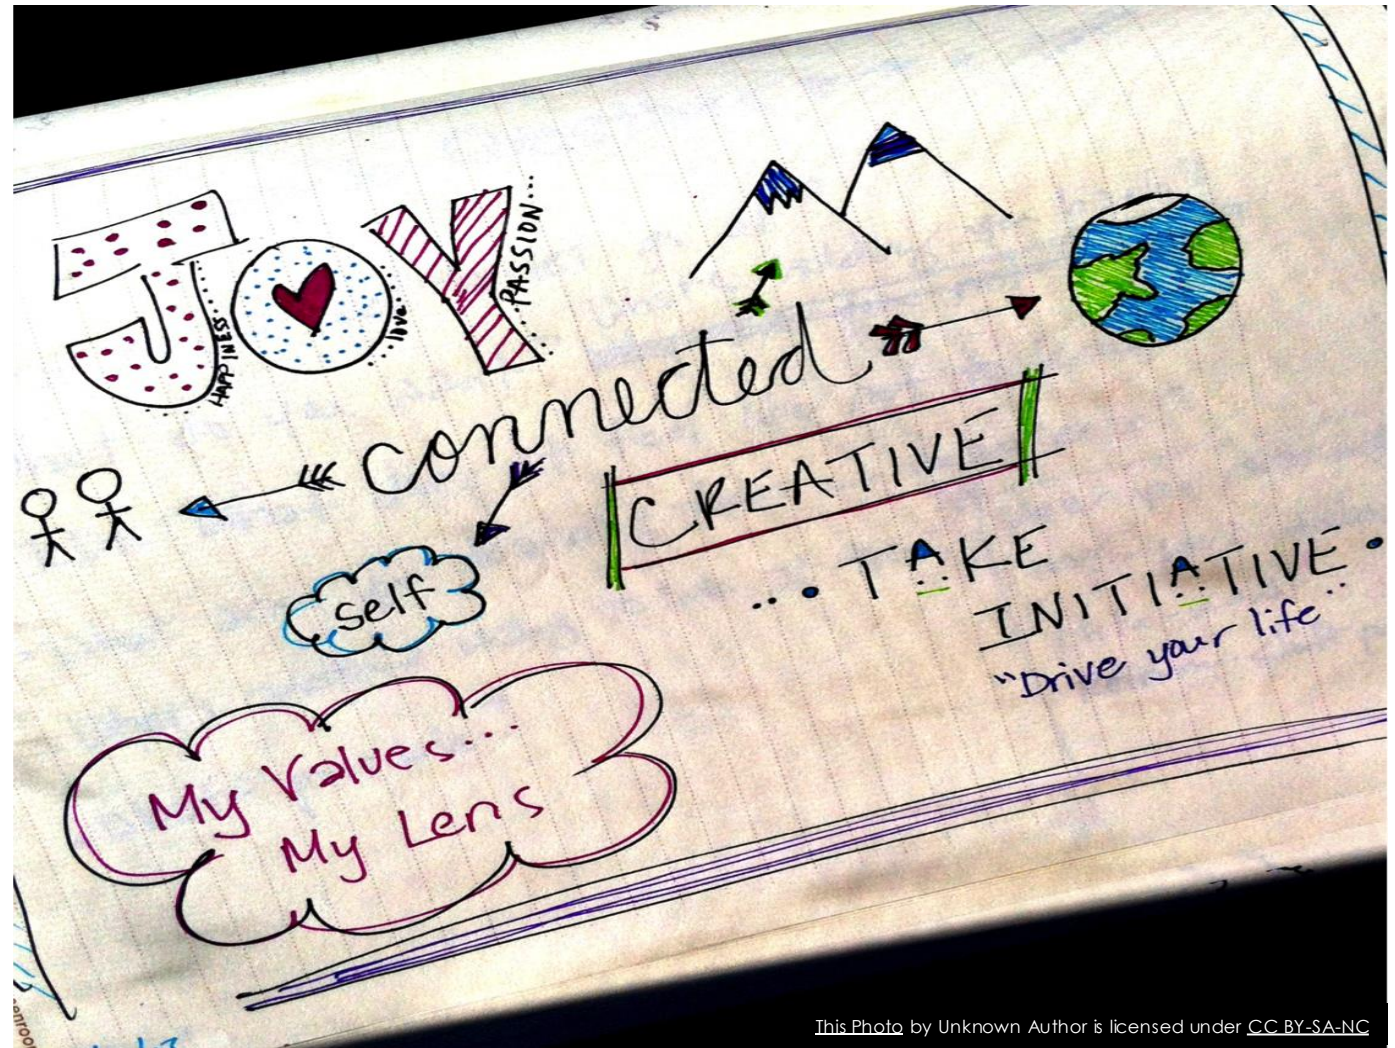 JOY
HAPPINESS
love
PASSION...
connected
CREATIVE
self
...TAKE
INITIATIVE
"Drive your life"
My Values...
My Lens
This Photo by Unknown Author is licensed under CC BY-SA-NC